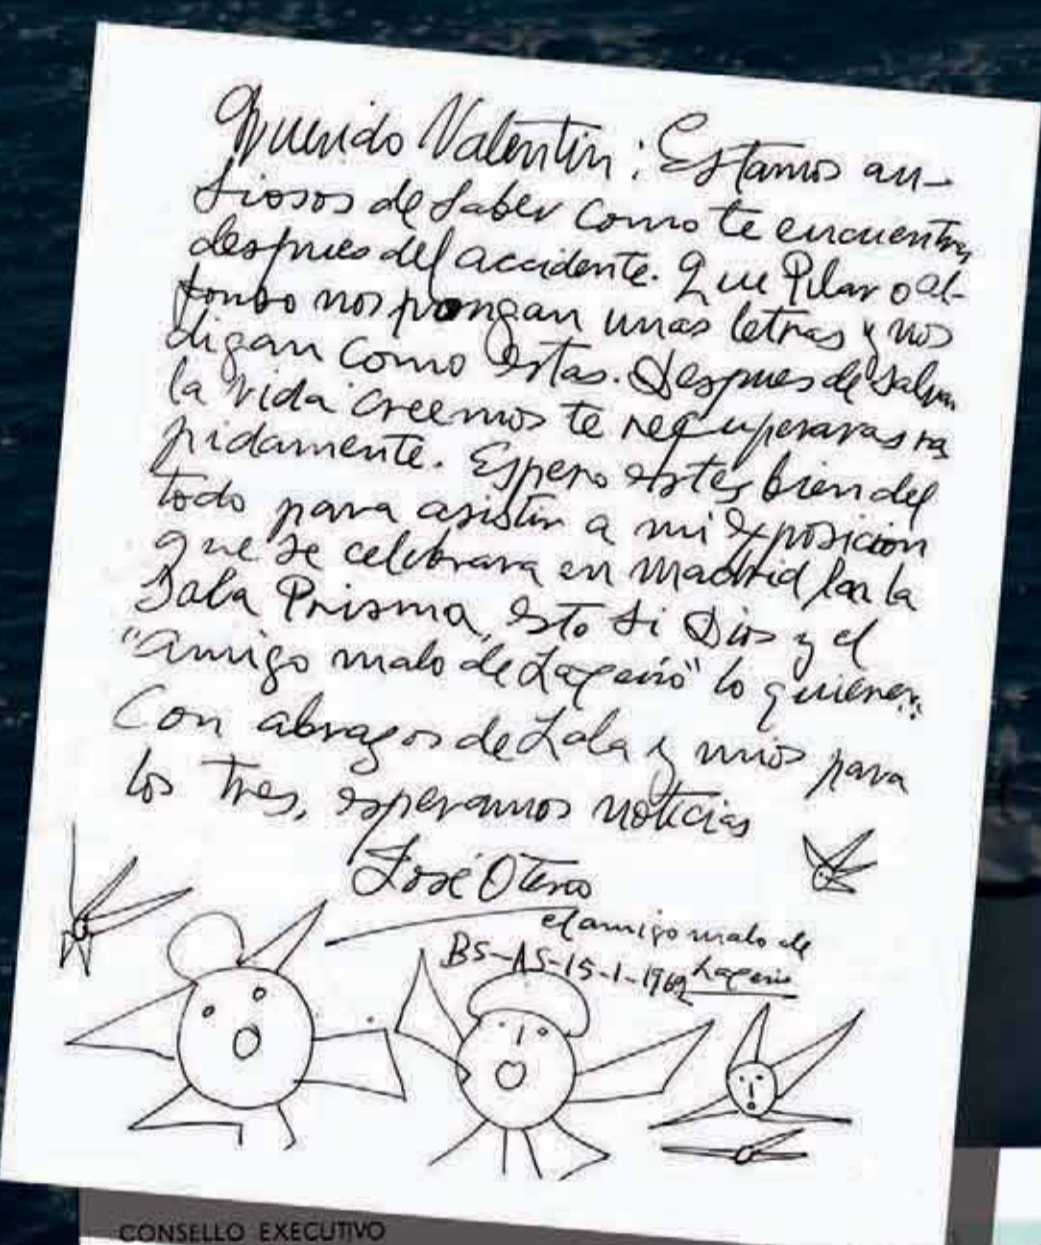 Querido Valentin: Estamos an-
siosos de saber como te encuentras
despues del accidente. Que Pilar o al-
nos pongan unas letras y nos
digan como estas. Despues de salvar
la vida creemos te recuperaras ra
pidamente. Espero estes bien del
todo para asistir a mi exposicion
que se celebrara en Madrid en la
Sala Prisma, esto si Dios y el
"amigo malo de Laxeiro" lo quieren.
Con abrazos de Lala y mios para
los tres, esperamos noticias
José Otero
el amigo malo de
BS-AS-15-1-1969 Laxeiro
CONSELLO EXECUTIVO